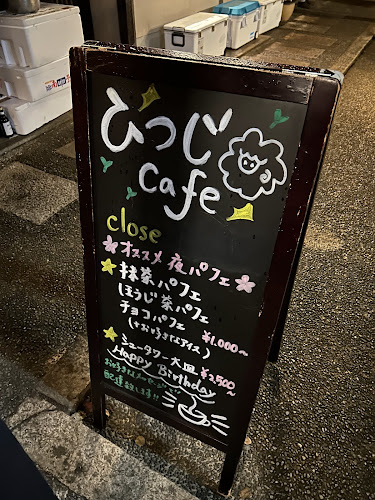 ひつじ
cafe
close
オススメ 夜パフェ
抹茶パフェ
ほうじ茶パフェ
チョコパフェ
¥1,000~
(+お好きなアイス)
シュータワー大皿
¥2,500~
Happy Birthday
お好きなメッセージ